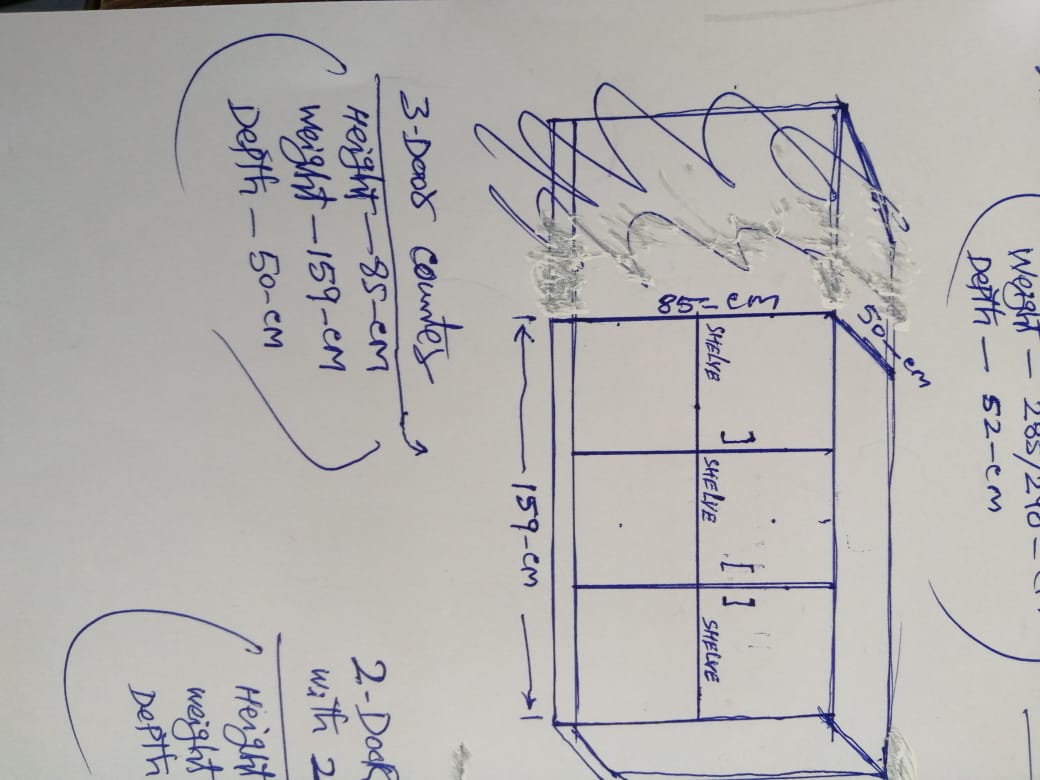 Weight — 285/290 — cm
Depth — 52-cm
50-cm
85-cm
SHELVE SHELVE SHELVE
159-cm
3-Door counter
Height — 85-cm
weight — 159-cm
Depth — 50-cm
2-Doo
with 2
Height
weight
Depth